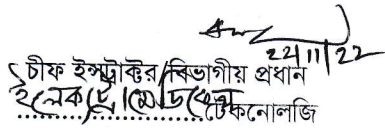 22/11/22
চীফ ইন্সট্রাক্টর/বিভাগীয় প্রধান
ইলেকট্রোমেডিকেল
....................টেকনোলজি